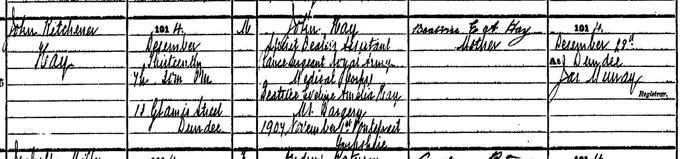 John Kitchener
Hay
1914
December
Thirteenth
7h 30m PM
13 Glamis Street
Dundee
M
John Hay
Assistant
Lance Sergeant Royal Army
Medical Corps
Beatrice Eveline Amelia Hay
M.S. Dargery
1907 November 1st Pontefract
Yorkshire
Beatrice E A Hay
Mother
1914
December 29th
At Dundee
Jas Murray
Registrar.